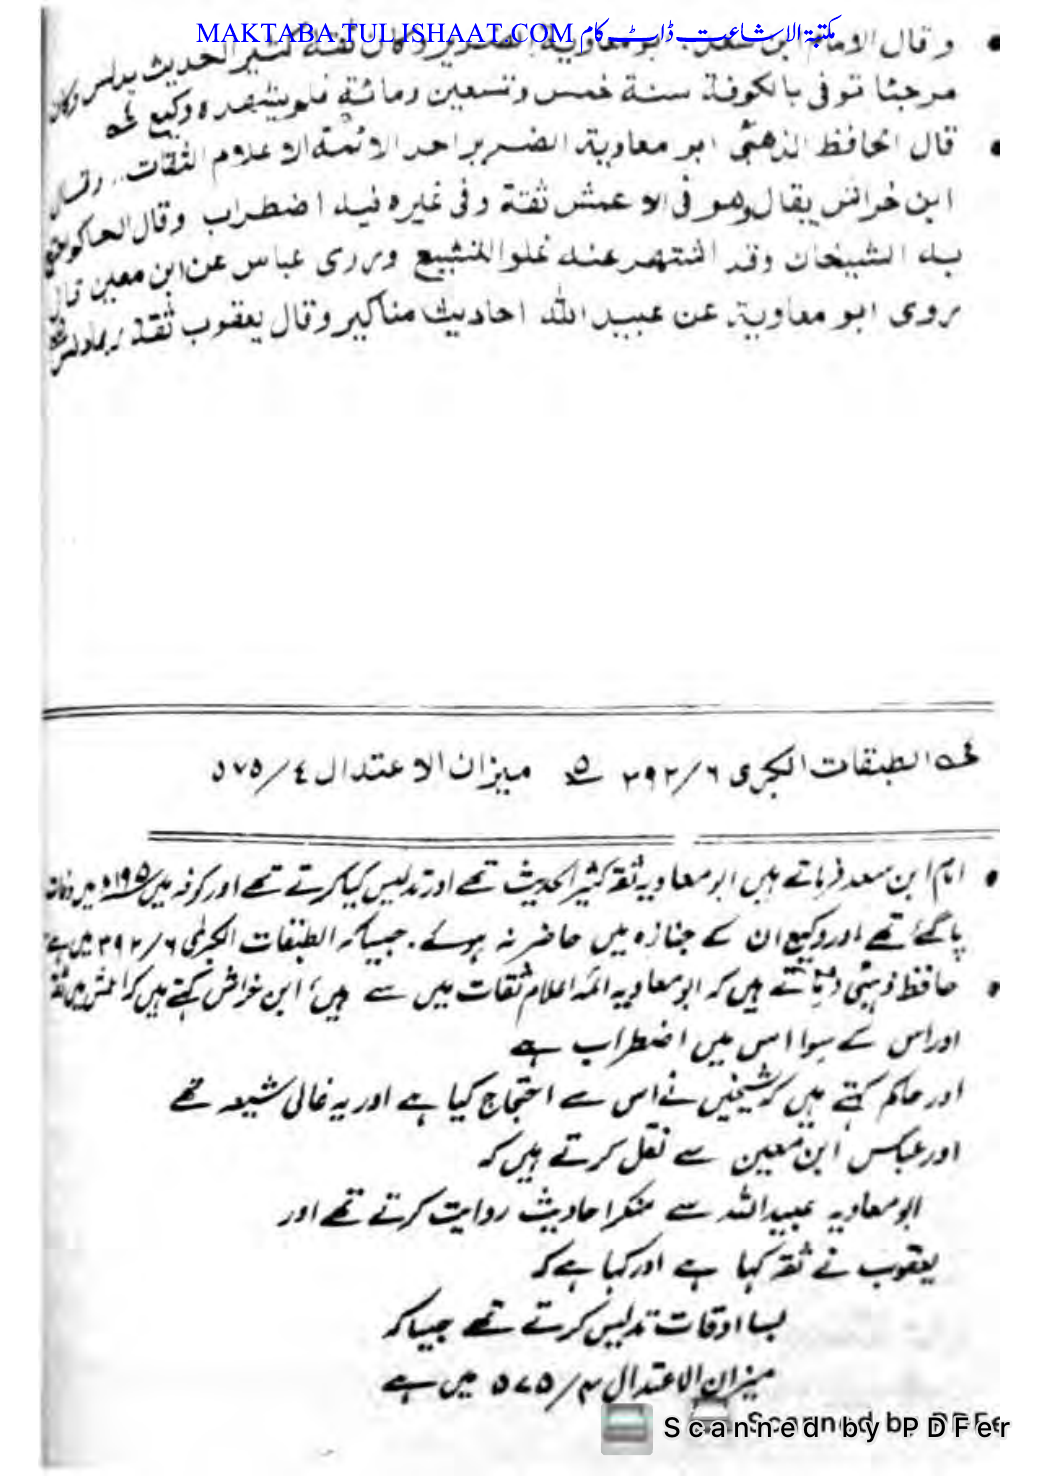 MAKTABA.TULISHAAT.COM مکتبۃ الاشاعت ڈاٹ کام
• وقال الامام ابن سعد ابو معاوية الضرير وكان ثقة كثير الحديث يدلس وكان
مرجئا توفى بالكوفة سنة خمس وتسعين ومائة فلم يشهده وكيع
• قال الحافظ الذهبى ابو معاوية الضرير احد الائمة الاعلام الثقات .. وقال
ابن خراش يقال وهو فى الاعمش ثقة وفى غيره فيه اضطراب وقال الحاكم احتج
به الشيخان وقد اشتهر عنه غلو التشيع وروى عباس عن ابن معين قال
روى ابو معاوية عن عبيد الله احاديث مناكير وقال يعقوب ثقة ربما دلس
الطبقات الكبرى ٦/٣٩٢ ميزان الاعتدال ٤/٥٧٥
• امام ابن سعد فرماتے ہیں ابو معاویہ ثقہ کثیر الحدیث تھے اور تدلیس کیا کرتے تھے اور کوفہ میں ۱۹۵ھ میں وفات
پا گئے تھے اور وکیع ان کے جنازہ میں حاضر نہ ہوئے ۔ جیسا کہ الطبقات الکبریٰ ۳۹۲/۶ میں ہے
• حافظ ذہبی فرماتے ہیں کہ ابو معاویہ ائمہ اعلام ثقات میں سے ہیں، ابن خراش کہتے ہیں کہ اعمش میں ثقہ
اور اس کے سوا اس میں اضطراب ہے
اور حاکم کہتے ہیں کہ شیخین نے اس سے احتجاج کیا ہے اور یہ غالی شیعہ تھے
اور عباس ابن معین سے نقل کرتے ہیں کہ
ابو معاویہ عبید اللہ سے منکر احادیث روایت کرتے تھے اور
یعقوب نے ثقہ کہا ہے اور کہا ہے کہ
بسا اوقات تدلیس کرتے تھے جیسا کہ
میزان الاعتدال ۴/۵۷۵ میں ہے
Scanned by PDFer